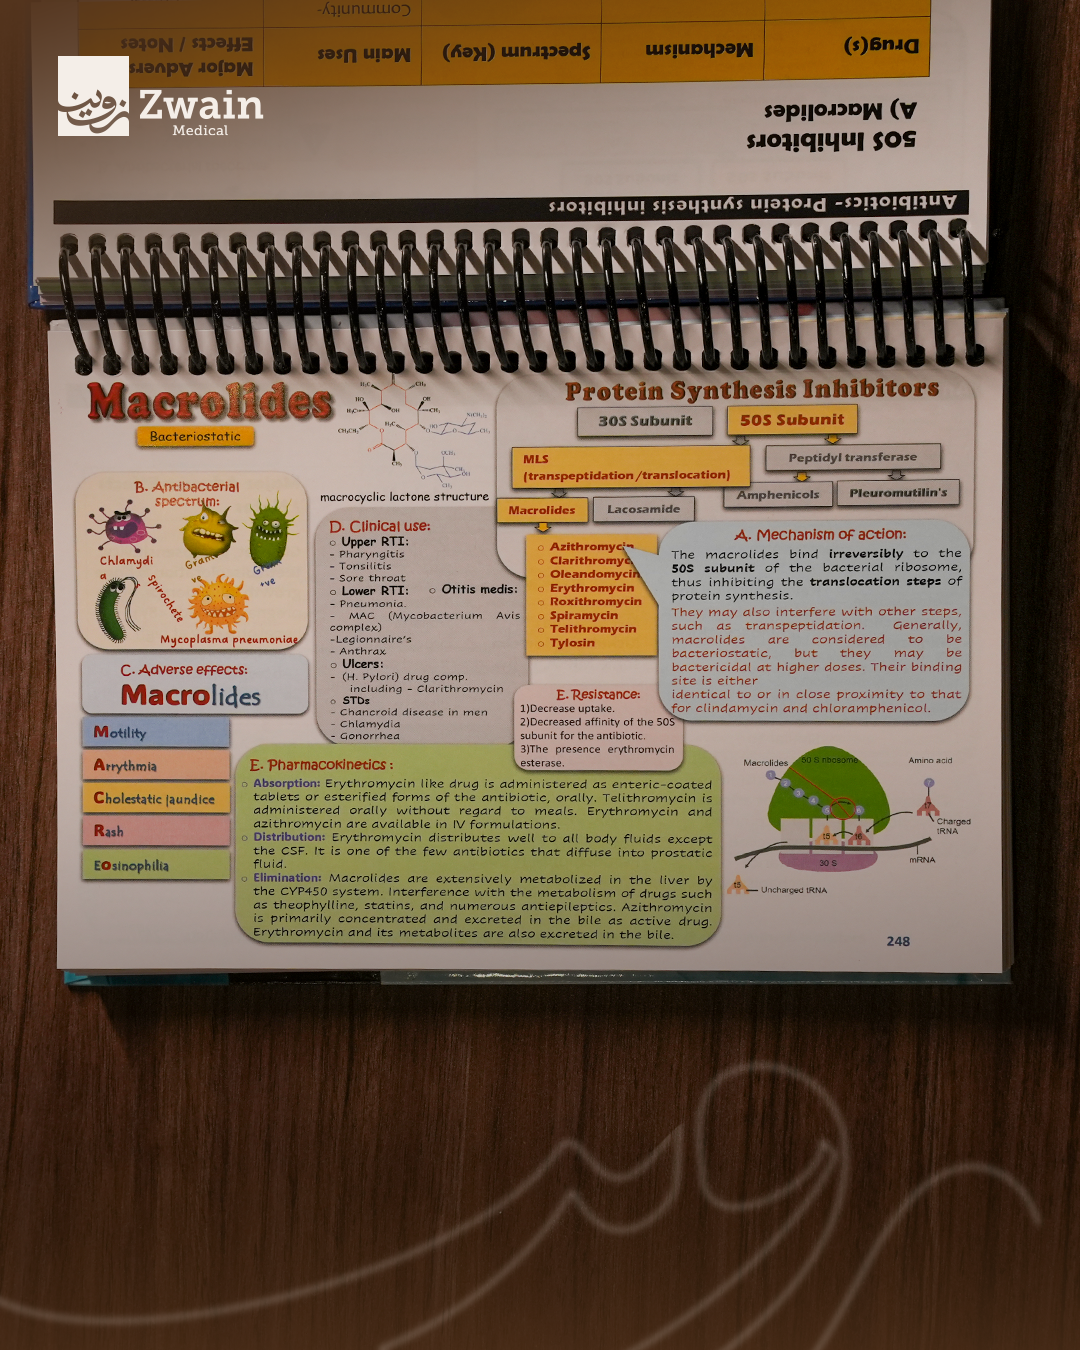 Community-
Drug(s) Mechanism Spectrum (Key) Main Uses Major Adverse Effects / Notes
زوين
Zwain
Medical
50S Inhibitors
A) Macrolides
Antibiotics- Protein synthesis inhibitors
Macrolides
Bacteriostatic
macrocyclic lactone structure
Protein Synthesis Inhibitors
30S Subunit
50S Subunit
MLS
(transpeptidation/translocation)
Peptidyl transferase
Macrolides
Lacosamide
Amphenicols
Pleuromutilin's
Azithromycin
Clarithromyc
Oleandomycin
Erythromycin
Roxithromycin
Spiramycin
Telithromycin
Tylosin
A. Mechanism of action:
The macrolides bind irreversibly to the
50S subunit of the bacterial ribosome,
thus inhibiting the translocation steps of
protein synthesis.
They may also interfere with other steps,
such as transpeptidation. Generally,
macrolides are considered to be
bacteriostatic, but they may be
bactericidal at higher doses. Their binding
site is either
identical to or in close proximity to that
for clindamycin and chloramphenicol.
B. Antibacterial
spectrum:
Chlamydi
a
Gram
-ve
Gram
+ve
Spirochete
Mycoplasma pneumoniae
C. Adverse effects:
Macrolides
Motility
Arrythmia
Cholestatic jaundice
Rash
Eosinophilia
D. Clinical use:
o Upper RTI:
- Pharyngitis
- Tonsilitis
- Sore throat
o Lower RTI: o Otitis medis:
- Pneumonia.
- MAC (Mycobacterium Avis
complex)
-Legionnaire's
- Anthrax
o Ulcers:
- (H. Pylori) drug comp.
including - Clarithromycin
o STDs
- Chancroid disease in men
- Chlamydia
- Gonorrhea
E. Resistance:
1)Decrease uptake.
2)Decreased affinity of the 50S
subunit for the antibiotic.
3)The presence erythromycin
esterase.
E. Pharmacokinetics :
o Absorption: Erythromycin like drug is administered as enteric-coated
tablets or esterified forms of the antibiotic, orally. Telithromycin is
administered orally without regard to meals. Erythromycin and
azithromycin are available in IV formulations.
o Distribution: Erythromycin distributes well to all body fluids except
the CSF. It is one of the few antibiotics that diffuse into prostatic
fluid.
o Elimination: Macrolides are extensively metabolized in the liver by
the CYP450 system. Interference with the metabolism of drugs such
as theophylline, statins, and numerous antiepileptics. Azithromycin
is primarily concentrated and excreted in the bile as active drug.
Erythromycin and its metabolites are also excreted in the bile.
Macrolides
50 S ribosome
Amino acid
Charged
tRNA
mRNA
30 S
t5
t6
t5
Uncharged tRNA
248